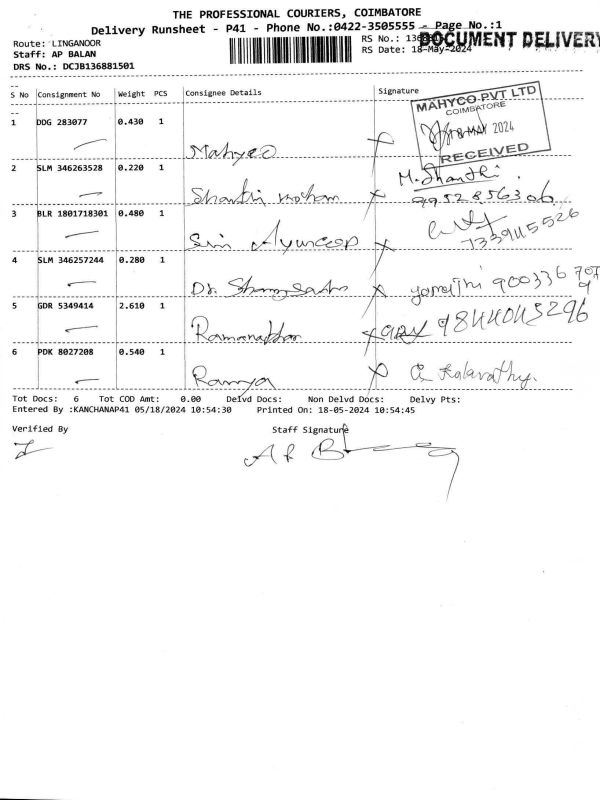 THE PROFESSIONAL COURIERS, COIMBATORE
Delivery Runsheet - P41 - Phone No.:0422-3505555 - Page No.:1
Route: LINGANOOR
RS No.: 136
DOCUMENT DELIVERY
Staff: AP BALAN
RS Date: 18-May-2024
DRS No.: DCJB136881501
S No Consignment No Weight PCS Consignee Details Signature
MAHYCO PVT LTD
COIMBATORE
18 MAY 2024
RECEIVED
1 DDG 283077 0.430 1
Mahyco
2 SLM 346263528 0.220 1 M. Shanthi.
Shanthi mohan 9952856306
3 BLR 1801718301 0.480 1
7339115526
4 SLM 346257244 0.280 1
Dr. 900336 707
9
5 GDR 5349414 2.610 1
Ramanathan
6 PDK 8027208 0.540 1
Ramya Kalavathy.
Tot Docs: 6 Tot COD Amt: 0.00 Delvd Docs: Non Delvd Docs: Delvy Pts:
Entered By :KANCHANAP41 05/18/2024 10:54:30 Printed On: 18-05-2024 10:54:45
Verified By Staff Signature